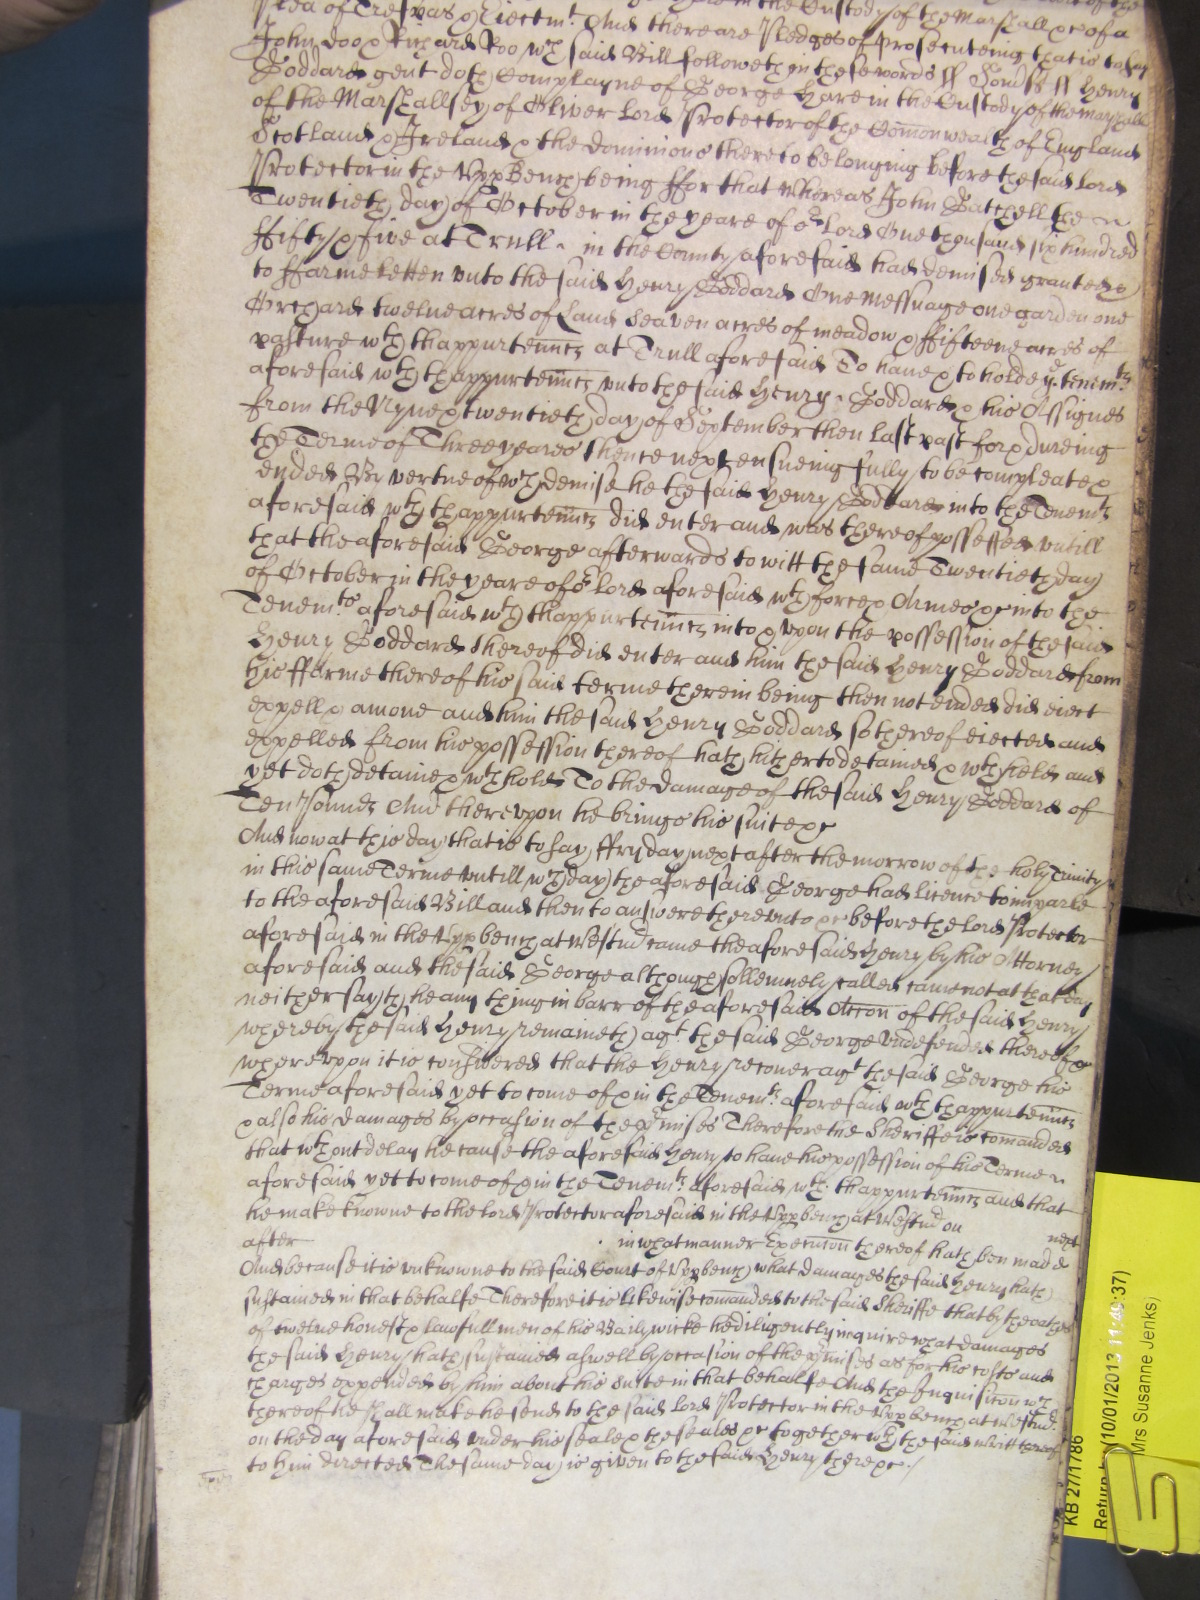 Plea of Trespas & Eiectmt. And there are Pledges of prosecuteing that is to say
John Doo & Richard Roo wch said Bill followeth in these words ss Somss ss Henry
Goddard gent doth Complayne of George Hare in the Custody of the Marshall
of the Marshallsey of Oliver Lord Protector of the Comonwealth of England
Scotland & Ireland & the dominions thereto belonging before the said Lord
Protector in the Vpp Bench being ffor that Whereas John Satchell the
Twentieth day of October in the yeare of or Lord One thousand six hundred
ffifty & five at Trull in the County aforesaid had demised granted &
to ffarme letten vnto the said Henry Goddard One Messuage one garden one
Orchard twelue acres of Land Seaven acres of meadow & ffifteene acres of
pasture wth thappurtennces at Trull aforesaid To haue & to hold ye tenemts
aforesaid wth thappurtennces vnto the said Henry Goddard & his Assignes
from the Nyne & twentieth day of September then last past for & dureing
the Terme of Three yeares thence next ensueing fully to be compleate &
ended By vertue of wch demise he the said Henry Goddard into the Tenemts
aforesaid wth thappurtennces did enter and was thereof possessed vntill
that the aforesaid George afterwards to witt the same Twentieth day
of October in the yeare of or Lord aforesaid wth force & Armes &c into the
Tenemts aforesaid wth thappurtennces into & vpon the possession of the said
Henry Goddard thereof did enter and him the said Henry Goddard from
his ffarme thereof his said terme therein being then not ended did eiect
expell & amove and him the said Henry Goddard so thereof eiected and
expelled from his possession thereof hath hitherto detained & wthheld and
yet doth detaine & wthhold To the damage of the said Henry Goddard of
Ten Pounds And therevpon he brings his suite &c
And now at this day that is to say ffryday next after the morrow of the holy Trinity
in this same Terme vntill wch day the aforesaid George had licence to imparle
to the aforesaid Bill and then to answere therevnto &c before the Lord Protector
aforesaid in the Vpp bench at Westmr came the aforesaid Henry by his Attorney
aforesaid and the said George although sollemnely called came not at that day
neither sayth he any thing in barr of the aforesaid Accon of the said Henry
whereby the said Henry remaineth agt the said George vndefended thereof &c
wherevpon it is considered that the Henry recouer agt the said George his
Terme aforesaid yet to come of & in the Tenemts aforesaid wth thappurtennces
& also his damages by occasion of the pmises Therefore the Sheriffe is comanded
that wthout delay he cause the aforesaid Henry to haue his possession of his Terme
aforesaid yet to come of & in the Tenemts aforesaid wth thappurtennces and that
he make knowne to the Lord Protector aforesaid in the Vpp bench at Westmr on next
after in what manner Execucon thereof hath ben made
And because it is vnknowne to the said Court of Vpp bench what damages the said Henry hath
sustained in that behalfe Therefore it is likewise comanded to the said Sheriffe that by the oathes
of twelue honest & lawfull men of his Bailywicke he diligently inquire what damages
the said Henry hath sustained aswell by occasion of the pmises as for his costs and
charges expended by him about his suite in that behalfe And the Inquisicon wch
thereof he shall make he send to the said Lord Protector in the Vpp bench at Westmr
on the day aforesaid vnder his seale & the seales &c together wth the said Writt thereof
to him directed The same day is given to the said Henry there &c
KB 27/1786
Return (10/01/2013 :37)
Mrs Susanne Jenks)